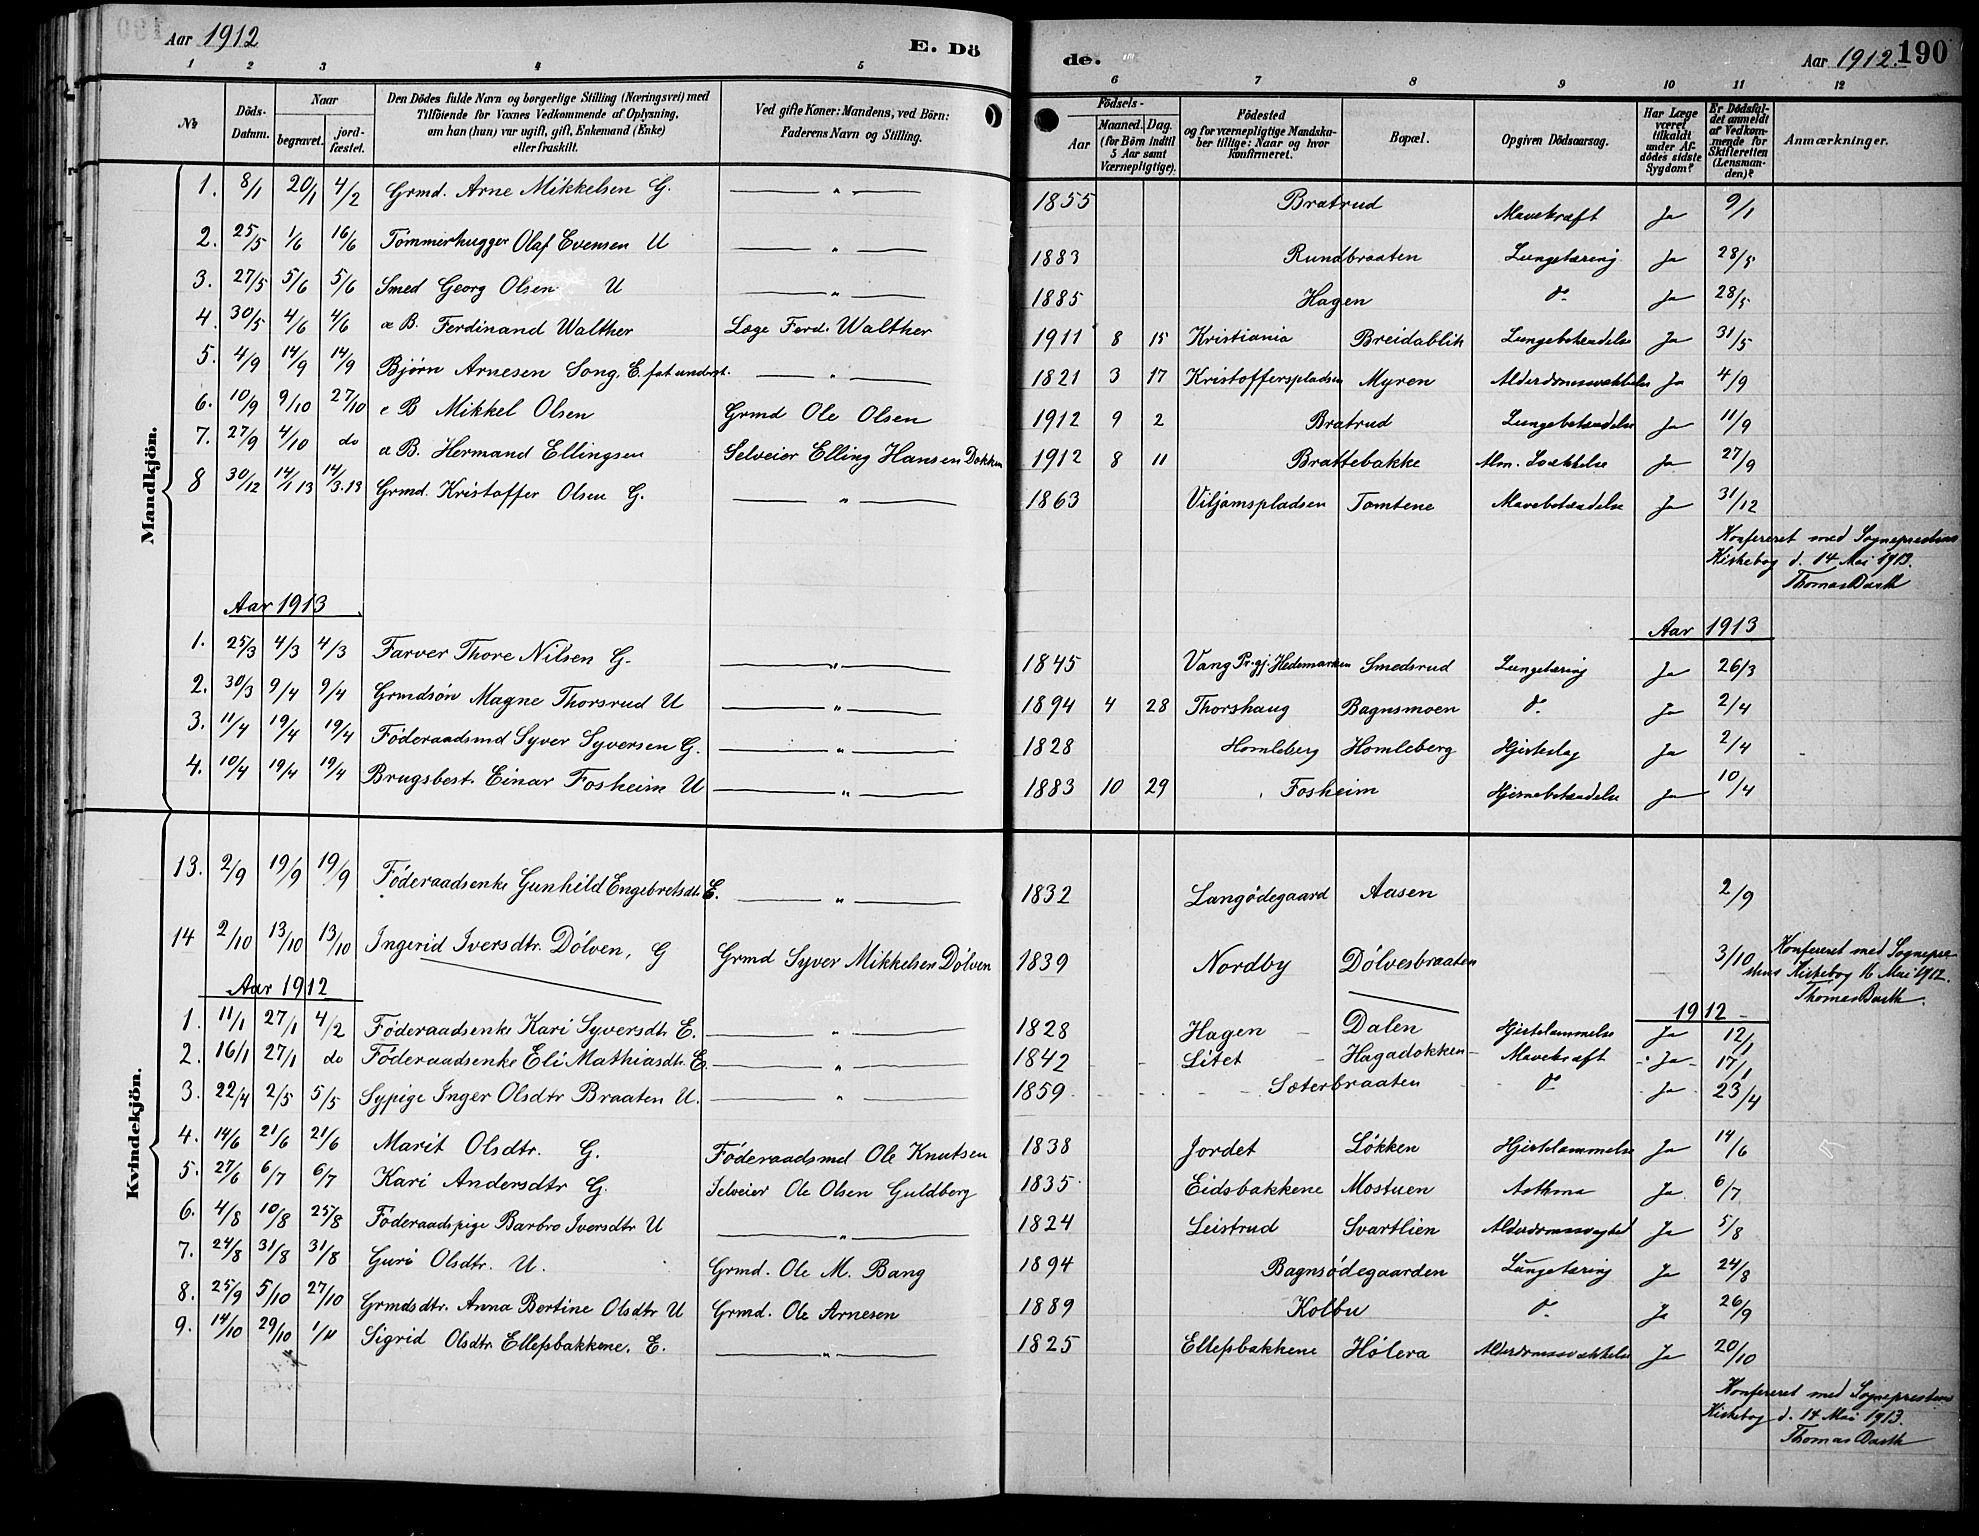 Aar 1912
E. Dö
de.
Aar 1912. 190
1 2 3 4 5 6 7 8 9 10 11 12
№
Döds-Datum.
Naar
begravet.
jord-fæstet.
Den Dödes fulde Navn og borgerlige Stilling (Næringsvei) med
Tilföiende for Voxnes Vedkommende af Oplysning,
om han (hun) var ugift, gift, Enkemand (Enke)
eller fraskilt.
Ved gifte Koner: Mandens, ved Börn:
Faderens Navn og Stilling.
Födsels-
Aar
Maaned. Dag.
(for Börn indtil
5 Aar samt
Værnepligtige).
Födested
og for værnepligtige Mandska-
ber tillige: Naar og hvor
konfirmeret.
Bopæl.
Opgiven Dödsaarsag.
Har Læge
været
tilkaldt
under Af-
dödes sidste
Sygdom?
Er Dödsfal-
det anmeldt
af Vedkom-
mende for
Skifteretten
(Lensman-
den)?
Anmærkninger.
Mandkjön.
1. 8/1 20/1 4/2 Grmd. Arne Mikkelsen G. — „ — 1855 Bratrud Mavekræft Ja 9/1
2. 25/5 1/6 16/6 Tømmerhugger Olaf Evensen U — „ — 1883 Rundbraaten Lungetæring Ja 28/5
3. 27/5 5/6 5/6 Smed Georg Olsen U — „ — 1885 Hagen do Ja 28/5
4. 30/5 4/6 4/6 æ B. Ferdinand Walther Læge Ferd. Walther 1911 8 15 Kristiania Breidablik Lungebetændelse Ja 31/5
5. 4/9 14/9 14/9 Bjørn Arnesen Song, E. fat. underst. — „ — 1821 3 17 Kristofferspladsen Myren Alderdomssvækkelse Ja 4/9
6. 10/9 9/10 27/10 e B Mikkel Olsen Grmd Ole Olsen 1912 9 2 Bratrud Lungebetændelse Ja 11/9
7. 27/9 4/10 do æ B. Hermand Ellingsen Selveier Elling Hansen Dokken 1912 8 11 Brattebakke Alm. Svækkelse Ja 27/9
8 30/12 14/1 13 14/3.13 Grmd. Kristoffer Olsen G. — „ — 1863 Viljamspladsen Tomtene Mavebetændelse Ja 31/12
Konfereret med Sogneprestens
Kirkebog d. 14 Mai 1913.
Thomas Barth
Aar 1913
Aar 1913
1. 25/3 4/3 4/3 Farver Thore Nilsen G. — „ — 1845 Vang Pr.gj. Hedemarken Smedsrud Lungetæring Ja 26/3
2. 30/3 9/4 9/4 Grmdsøn Magne Thorsrud U — „ — 1894 4 28 Thorshaug Bagnsmoen do Ja 2/4
3. 11/4 19/4 19/4 Føderaadsmd Syver Syversen G. — „ — 1828 Homleberg Homleberg Hjerteslag Ja 2/4
4. 10/4 19/4 19/4 Brugsbest. Einar Fosheim U — „ — 1883 10 29 Fosheim Hjernebetændelse Ja 10/4
Kvindekjön.
13. 2/9 19/9 19/9 Føderaadsenke Gunhild Engebretsdtr. E. — „ — 1832 Langødegaard Aasen 2/9
14 2/10 13/10 13/10 Ingerid Iversdtr. Dölven, G Grmd Syver Mikkelsen Dölven 1839 Nordby Dölvesbraaten 3/10
Konfereret med Sognepre-
stens Kirkebog 16 Mai 1912.
Thomas Barth.
Aar 1912
1912
1. 11/1 27/1 4/2 Føderaadsenke Kari Syversdtr. E. — „ — 1828 Hagen Dalen Hjertelammelse Ja 12/1
2. 16/1 27/1 do Føderaadsenke Eli Mathiasdtr. E. — „ — 1842 Litet Hagadokken Mavekræft Ja 17/1
3. 22/4 2/5 5/5 Sypige Inger Olsdtr Braaten U. — „ — 1859 Sæterbraaten do Ja 23/4
4. 14/6 21/6 21/6 Marit Olsdtr. G. Føderaadsmd Ole Knutsen 1838 Jordet Løkken Hjertelammelse Ja 14/6
5. 27/6 6/7 6/7 Kari Andersdtr G. Selveier Ole Olsen Guldberg 1835 Eidsbakkene Mostuen Asthma Ja 6/7
6. 4/8 10/8 25/8 Føderaadspige Barbro Iversdtr U — „ — 1824 Leistrud Svartlien Alderdomssvaghed Ja 5/8
7. 24/8 31/8 31/8 Guri Olsdtr. U. Grmd. Ole M. Bang 1894 Bagnsødegaarden Lungetæring Ja 24/8
8. 25/9 5/10 27/10 Grmdsdtr. Anna Bertine Olsdtr U Grmd. Ole Arnesen 1889 Kolbu do Ja 26/9
9. 14/10 29/10 1/11 Sigrid Olsdtr. Ellefsbakkene. E. — „ — 1825 Ellefsbakkene Hølera Alderdomssvækkelse Ja 20/10
Konfereret med Sogneprestens
Kirkebog d. 14 Mai 1913.
Thomas Barth